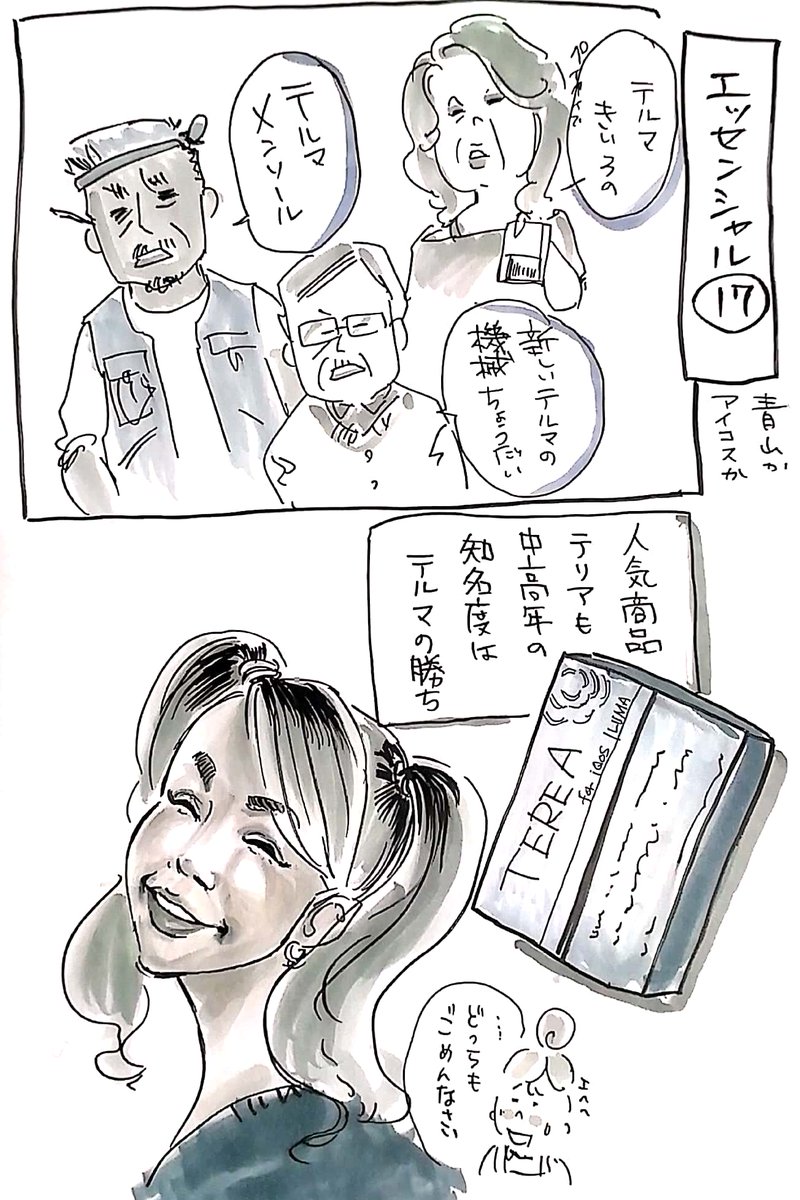 エッセンシャル
17
青山か
アイコスか
テルマ
きいろの
テルマ
メンソール
新しいテルマの
機械ちょうだい
人気商品
テリアも
中高年の
知名度は
テルマの勝ち
TEREA
for iQOS ILUMA
…
どっちも
ごめんなさい